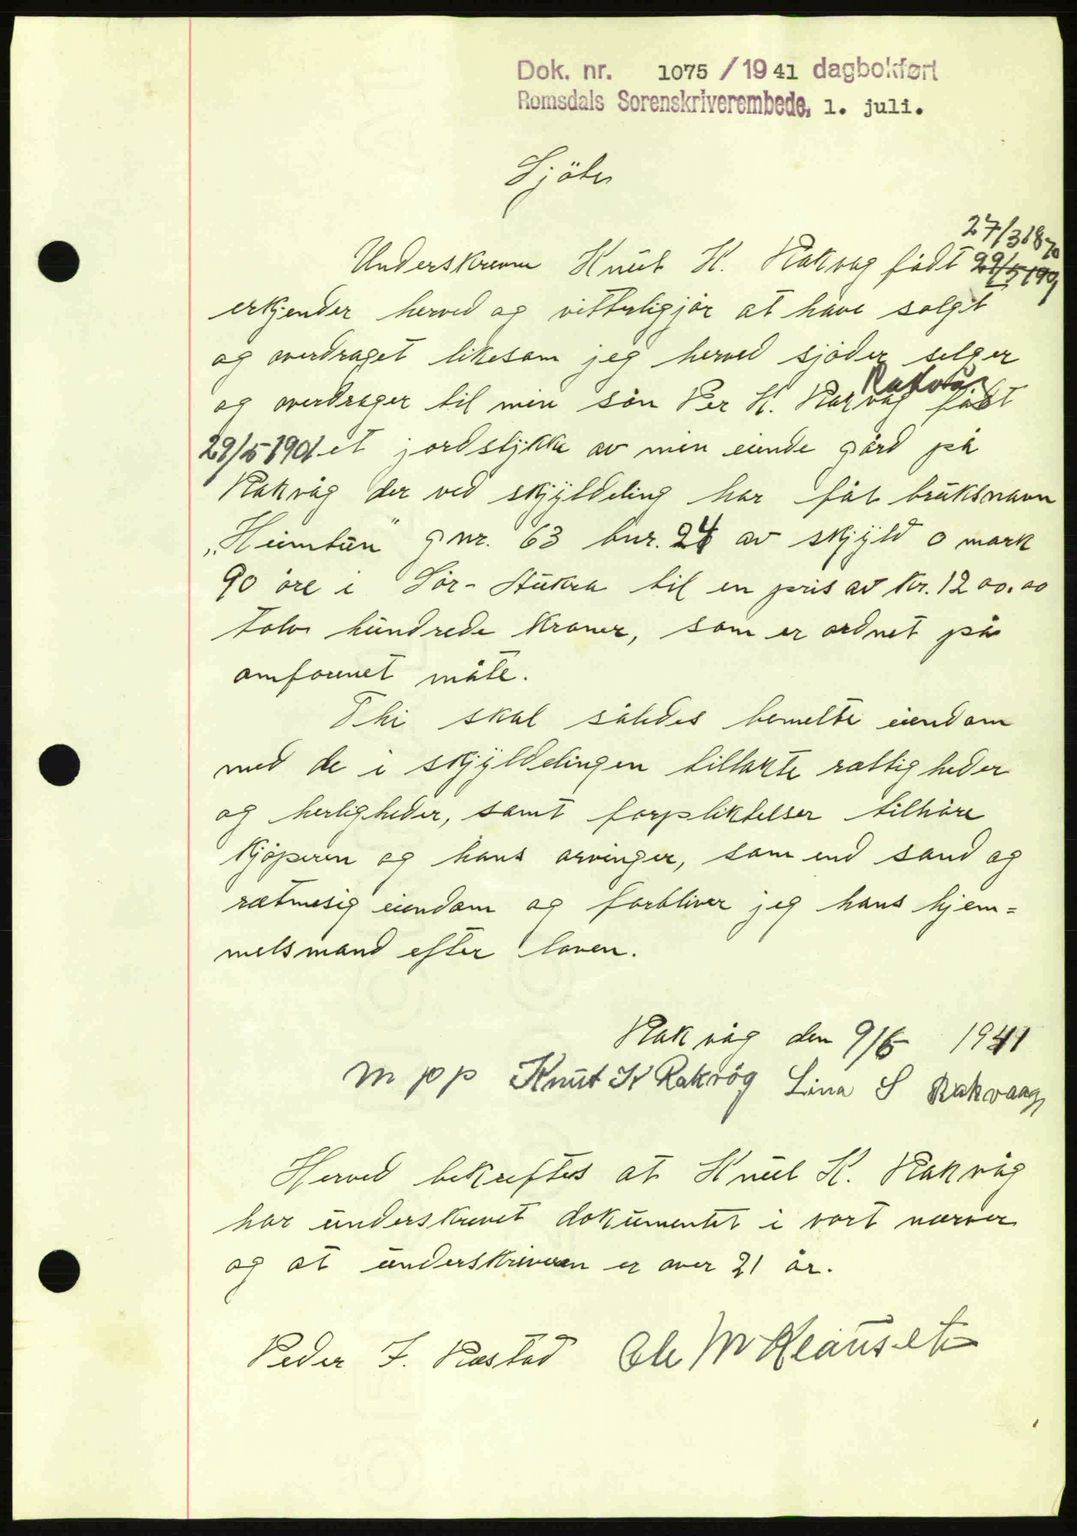 Dok. nr. 1075 / 1941 dagbokført
Romsdals Sorenskriverembede, 1. juli.
Sjöte
27/3 1870
Underskrevne Knut K. Rakvag födt 29/5 190
erkjender herved og vitterligjör at have solgt
og overdraget likesom jeg herved sjöder selger
Rakvåg
og overdrager til min sön Per K. Rakvåg födt
29/5-1901 et jordstykke av min eiende gård på
Rakvåg der ved skjyldeling har fåt bruksnavn
„Heimtun“ gnr. 63 bnr. 24 av skjyld 0 mark
90 öre i Sör-Aukra til en pris av kr. 1200.00
tolv hundrede kroner, som er ordnet på
omforenet måte.
Thi skal således bemelte eiendom
med de i skjyldelingen tillakte rettigheder
og herligheder, samt forpliktelser tilhöre
kjöperen og hans arvinger, som end sand og
retmesig eiendom og forbliver jeg hans hjem=
melsmand efter loven.
Rakvåg den 9/6 1941
m p p Knut K Rakvåg Lina S Rakvaag
Herved bekreftes at Knut K. Rakvåg
har underskrevet dokumentet i vort nærver
og at underskriveren er over 21 år.
Peder J. Rastad Ole M Kleauset